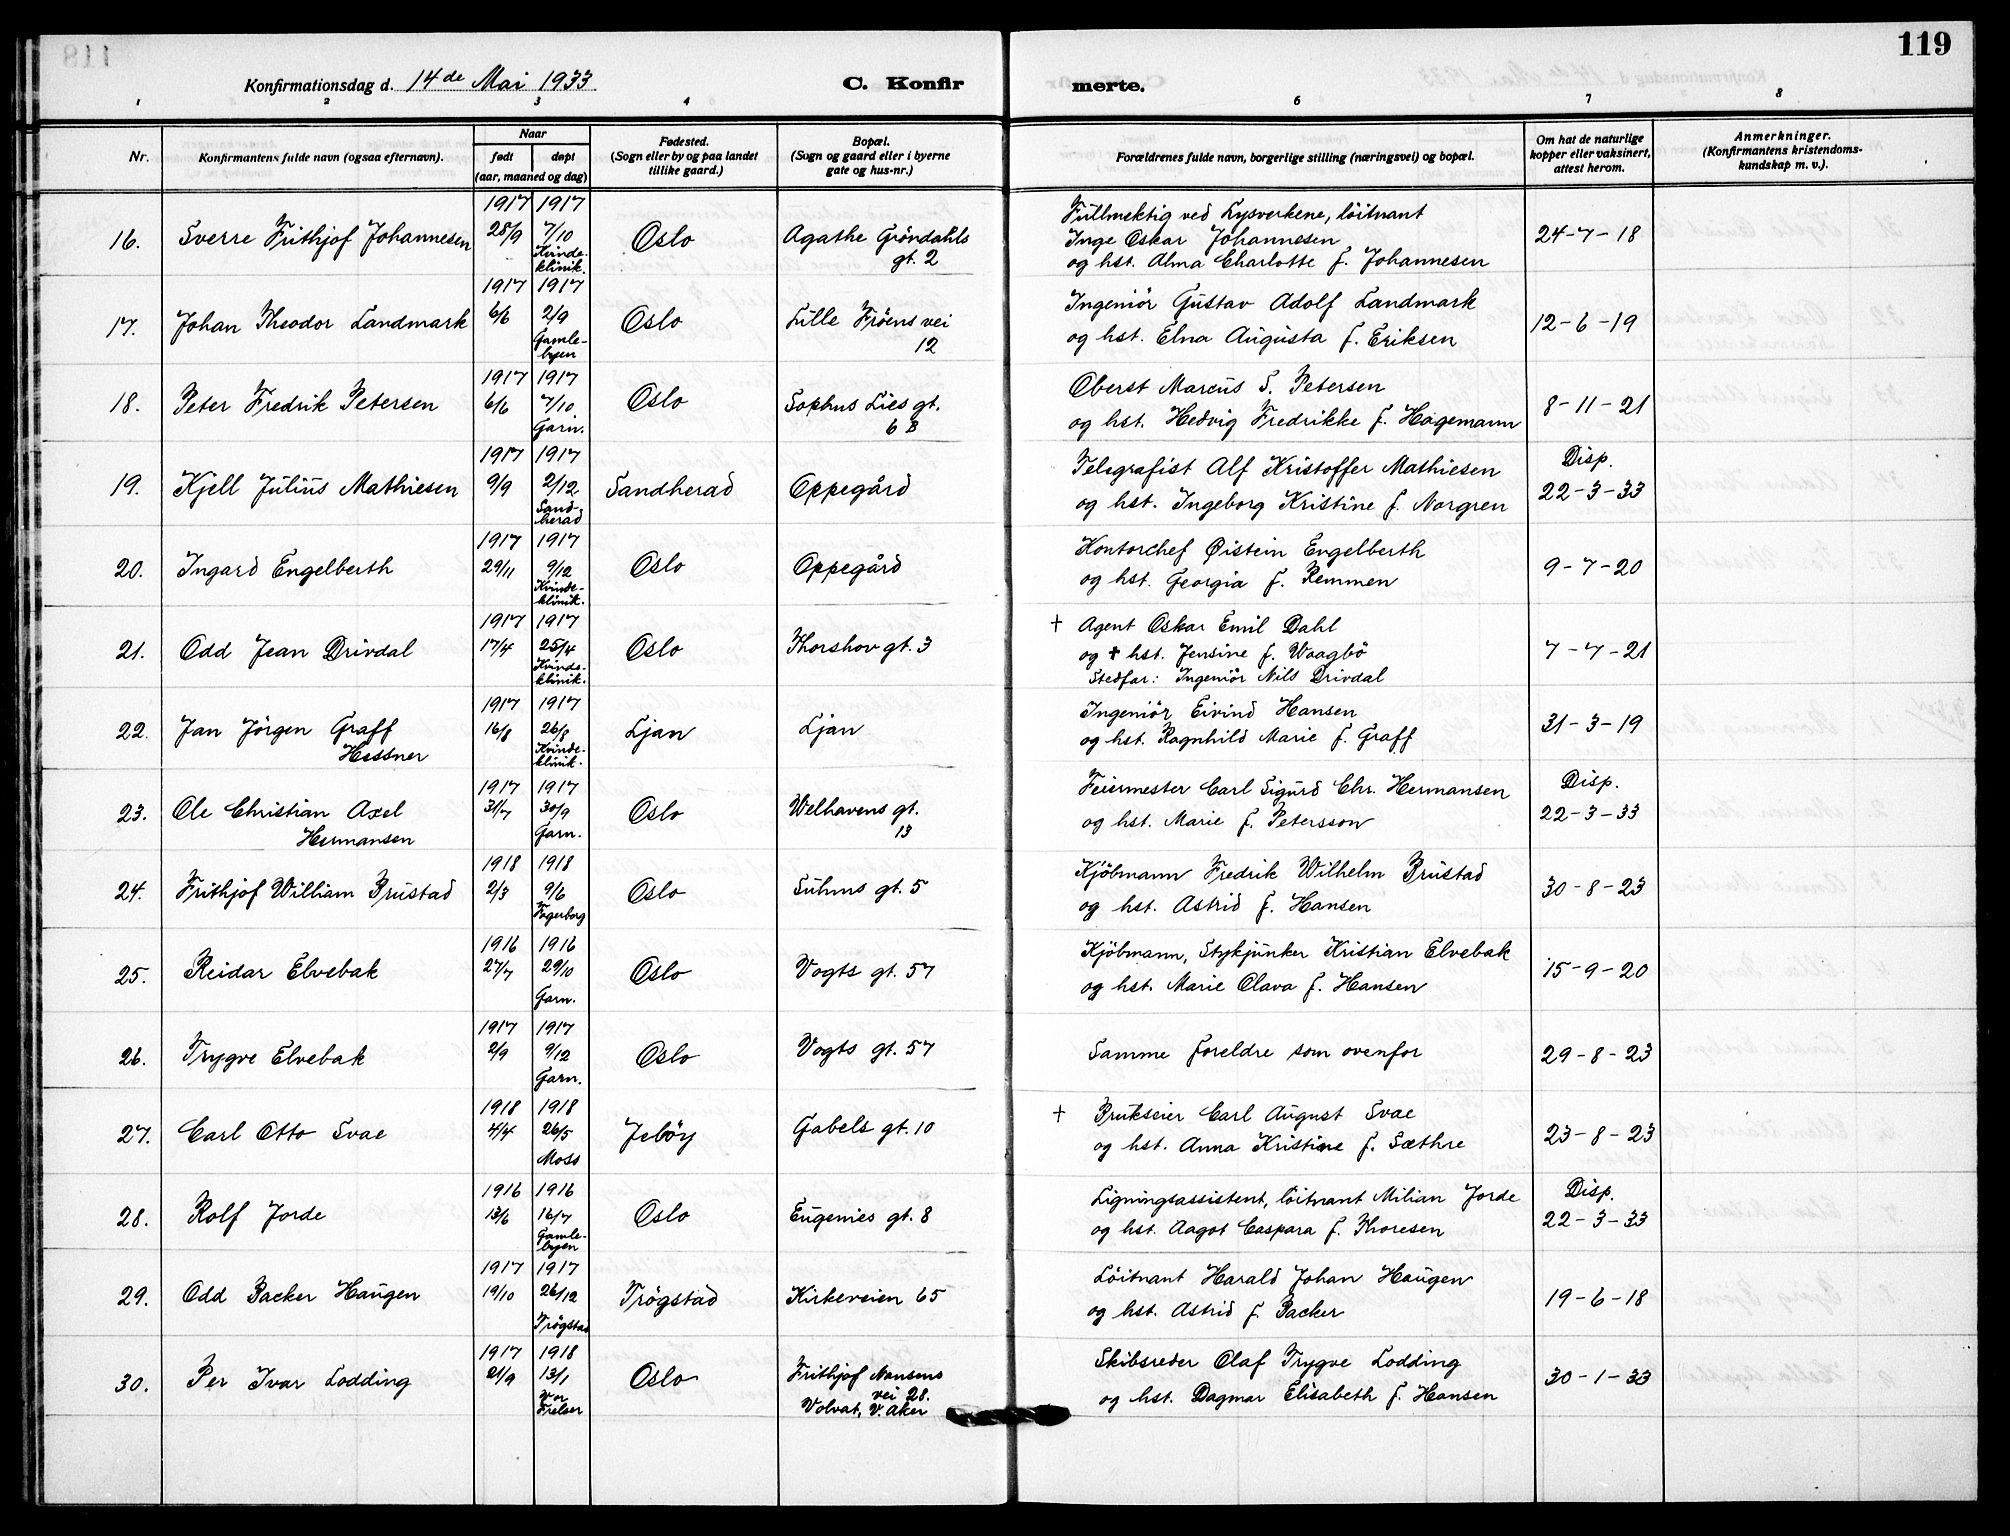 119
Konfirmationsdag d. 14de Mai 1933. C. Konfirmerte.
1 2 3 4 6 7 8
Nr. | Konfirmantens fulde navn (ogsaa efternavn). | Naar født døpt (aar, maaned og dag) | Fødested. (Sogn eller by og paa landet tillike gaard.) | Bopæl. (Sogn og gaard eller i byerne gate og hus-nr.) | Forældrenes fulde navn, borgerlige stilling (næringsvei) og bopæl. | Om hat de naturlige kopper eller vaksinert, attest herom. | Anmerkninger. (Konfirmantens kristendomskundskap m. v.).
16. Sverre Frithjof Johannesen | 1917 28/9 | 1917 7/10 Kvinde-klinik. | Oslo | Agathe Gröndahls gt. 2 | Fullmektig ved Lysverkene, löitnant Inge Oskar Johannesen og hst. Alma Charlotte f. Johannesen | 24-7-18
17. Johan Theodor Landmark | 1917 6/6 | 1917 2/9 Gamle-byen | Oslo | Lille Fröens vei 12 | Ingeniör Gustav Adolf Landmark og hst. Elna Augusta f. Eriksen | 12-6-19
18. Peter Fredrik Petersen | 1917 6/6 | 1917 7/10 Garn. | Oslo | Sophus Lies gt. 6 B | Oberst Marcus S. Petersen og hst. Hedvig Fredrikke f. Hagemann | 8-11-21
19. Kjell Julius Mathiesen | 1917 9/9 | 1917 2/12 Sand-herad | Sandherad | Oppegård | Telegrafist Alf Kristoffer Mathiesen og hst. Ingeborg Kristine f. Norgren | Disp. 22-3-33
20. Ingard Engelberth | 1917 29/11 | 1917 9/12 Kvinde-klinik. | Oslo | Oppegård | Kontorchef Øistein Engelberth og hst. Georgia f. Remmen | 9-7-20
21. Odd Jean Drivdal | 1917 17/4 | 1917 25/4 Kvinde-klinik. | Oslo | Thorshov gt. 3 | † Agent Oskar Emil Dahl og † hst. Jensine f. Waagbö Stedfar: Ingeniör Nils Drivdal | 7-7-21
22. Jan Jörgen Graff Hessner | 1917 16/8 | 1917 26/8 Kvinde-klinik. | Ljan | Ljan | Ingeniör Eivind Hansen og hst. Ragnhild Marie f. Graff | 31-3-19
23. Ole Christian Axel Hermansen | 1917 31/7 | 1917 30/9 Garn. | Oslo | Welhavens gt. 13 | Feiermester Carl Sigurd Chr. Hermansen og hst. Marie f. Petersson | Disp. 22-3-33
24. Frithjof William Brustad | 1918 2/3 | 1918 9/6 Fagerborg | Oslo | Suhms gt. 5 | Kjöbmann Fredrik Wilhelm Brustad og hst. Astrid f. Hansen | 30-8-23
25. Reidar Elvebak | 1916 27/7 | 1916 29/10 Garn. | Oslo | Vogts gt. 57 | Kjöbmann, Stykjunker Kristian Elvebak og hst. Marie Olava f. Hansen | 15-9-20
26. Trygve Elvebak | 1917 2/9 | 1917 9/12 Garn. | Oslo | Vogts gt. 57 | Samme foreldre som ovenfor | 29-8-23
27. Carl Otto Svae | 1918 4/4 | 1918 26/5 Moss | Jelöy | Gabels gt. 10 | † Brukseier Carl August Svae og hst. Anna Kristine f. Sæthre | 23-8-23
28. Rolf Jorde | 1916 13/6 | 1916 16/7 Gamle-byen | Oslo | Eugenies gt. 8 | Ligningsassistent, löitnant Milian Jorde og hst. Aagot Caspara f. Thoresen | Disp. 22-3-33
29. Odd Backer Haugen | 1917 19/10 | 1917 26/12 Trögstad | Trögstad | Kirkeveien 65 | Löitnant Harald Johan Haugen og hst. Astrid f. Backer | 19-6-18
30. Per Ivar Lodding | 1917 21/9 | 1918 13/1 Vor Frelser | Oslo | Frithjof Nansens vei 28. Volvat, V. Aker | Skibsreder Olaf Trygve Lodding og hst. Dagmar Elisabeth f. Hansen | 30-1-33